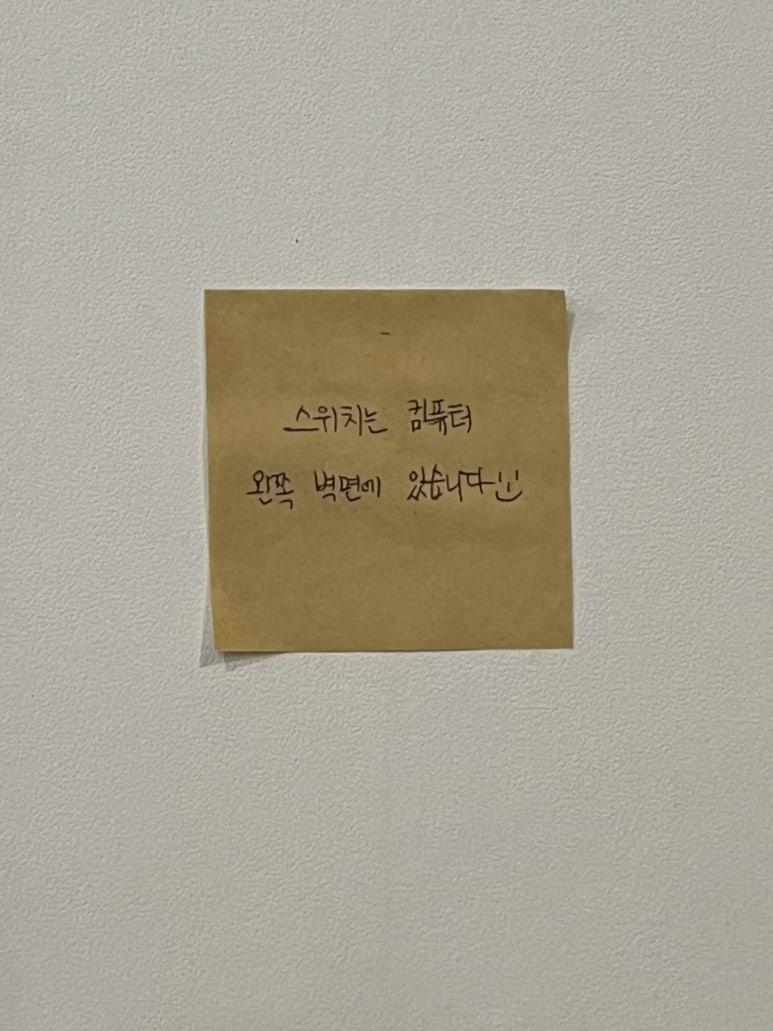 스위치는 컴퓨터
왼쪽 벽면에 있습니다 :)